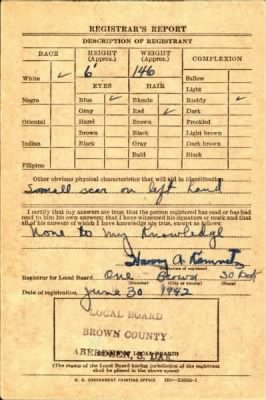 REGISTRAR'S REPORT
DESCRIPTION OF REGISTRANT
RACE HEIGHT (Approx.) WEIGHT (Approx.) COMPLEXION
White ✓ 6' 146 Sallow
EYES HAIR Light
Negro Blue ✓ Blonde Ruddy ✓
Gray Red ✓ Dark
Oriental Hazel Brown Freckled
Brown Black Light brown
Indian Black Gray Dark brown
Bald Black
Filipino
Other obvious physical characteristics that will aid in identification
Small scar on left hand
I certify that my answers are true; that the person registered has read or has had
read to him his own answers; that I have witnessed his signature or mark and that
all of his answers of which I have knowledge are true, except as follows:
None to my Knowledge
Harry A.
Registrar for Local Board One Brown
(Number) (City or county) (State)
Date of registration June 30 1942
LOCAL BOARD
BROWN COUNTY
ABERDEEN, S. DAK
(The stamp of the Local Board having jurisdiction of the registrant
shall be placed in the above space)
U. S. GOVERNMENT PRINTING OFFICE